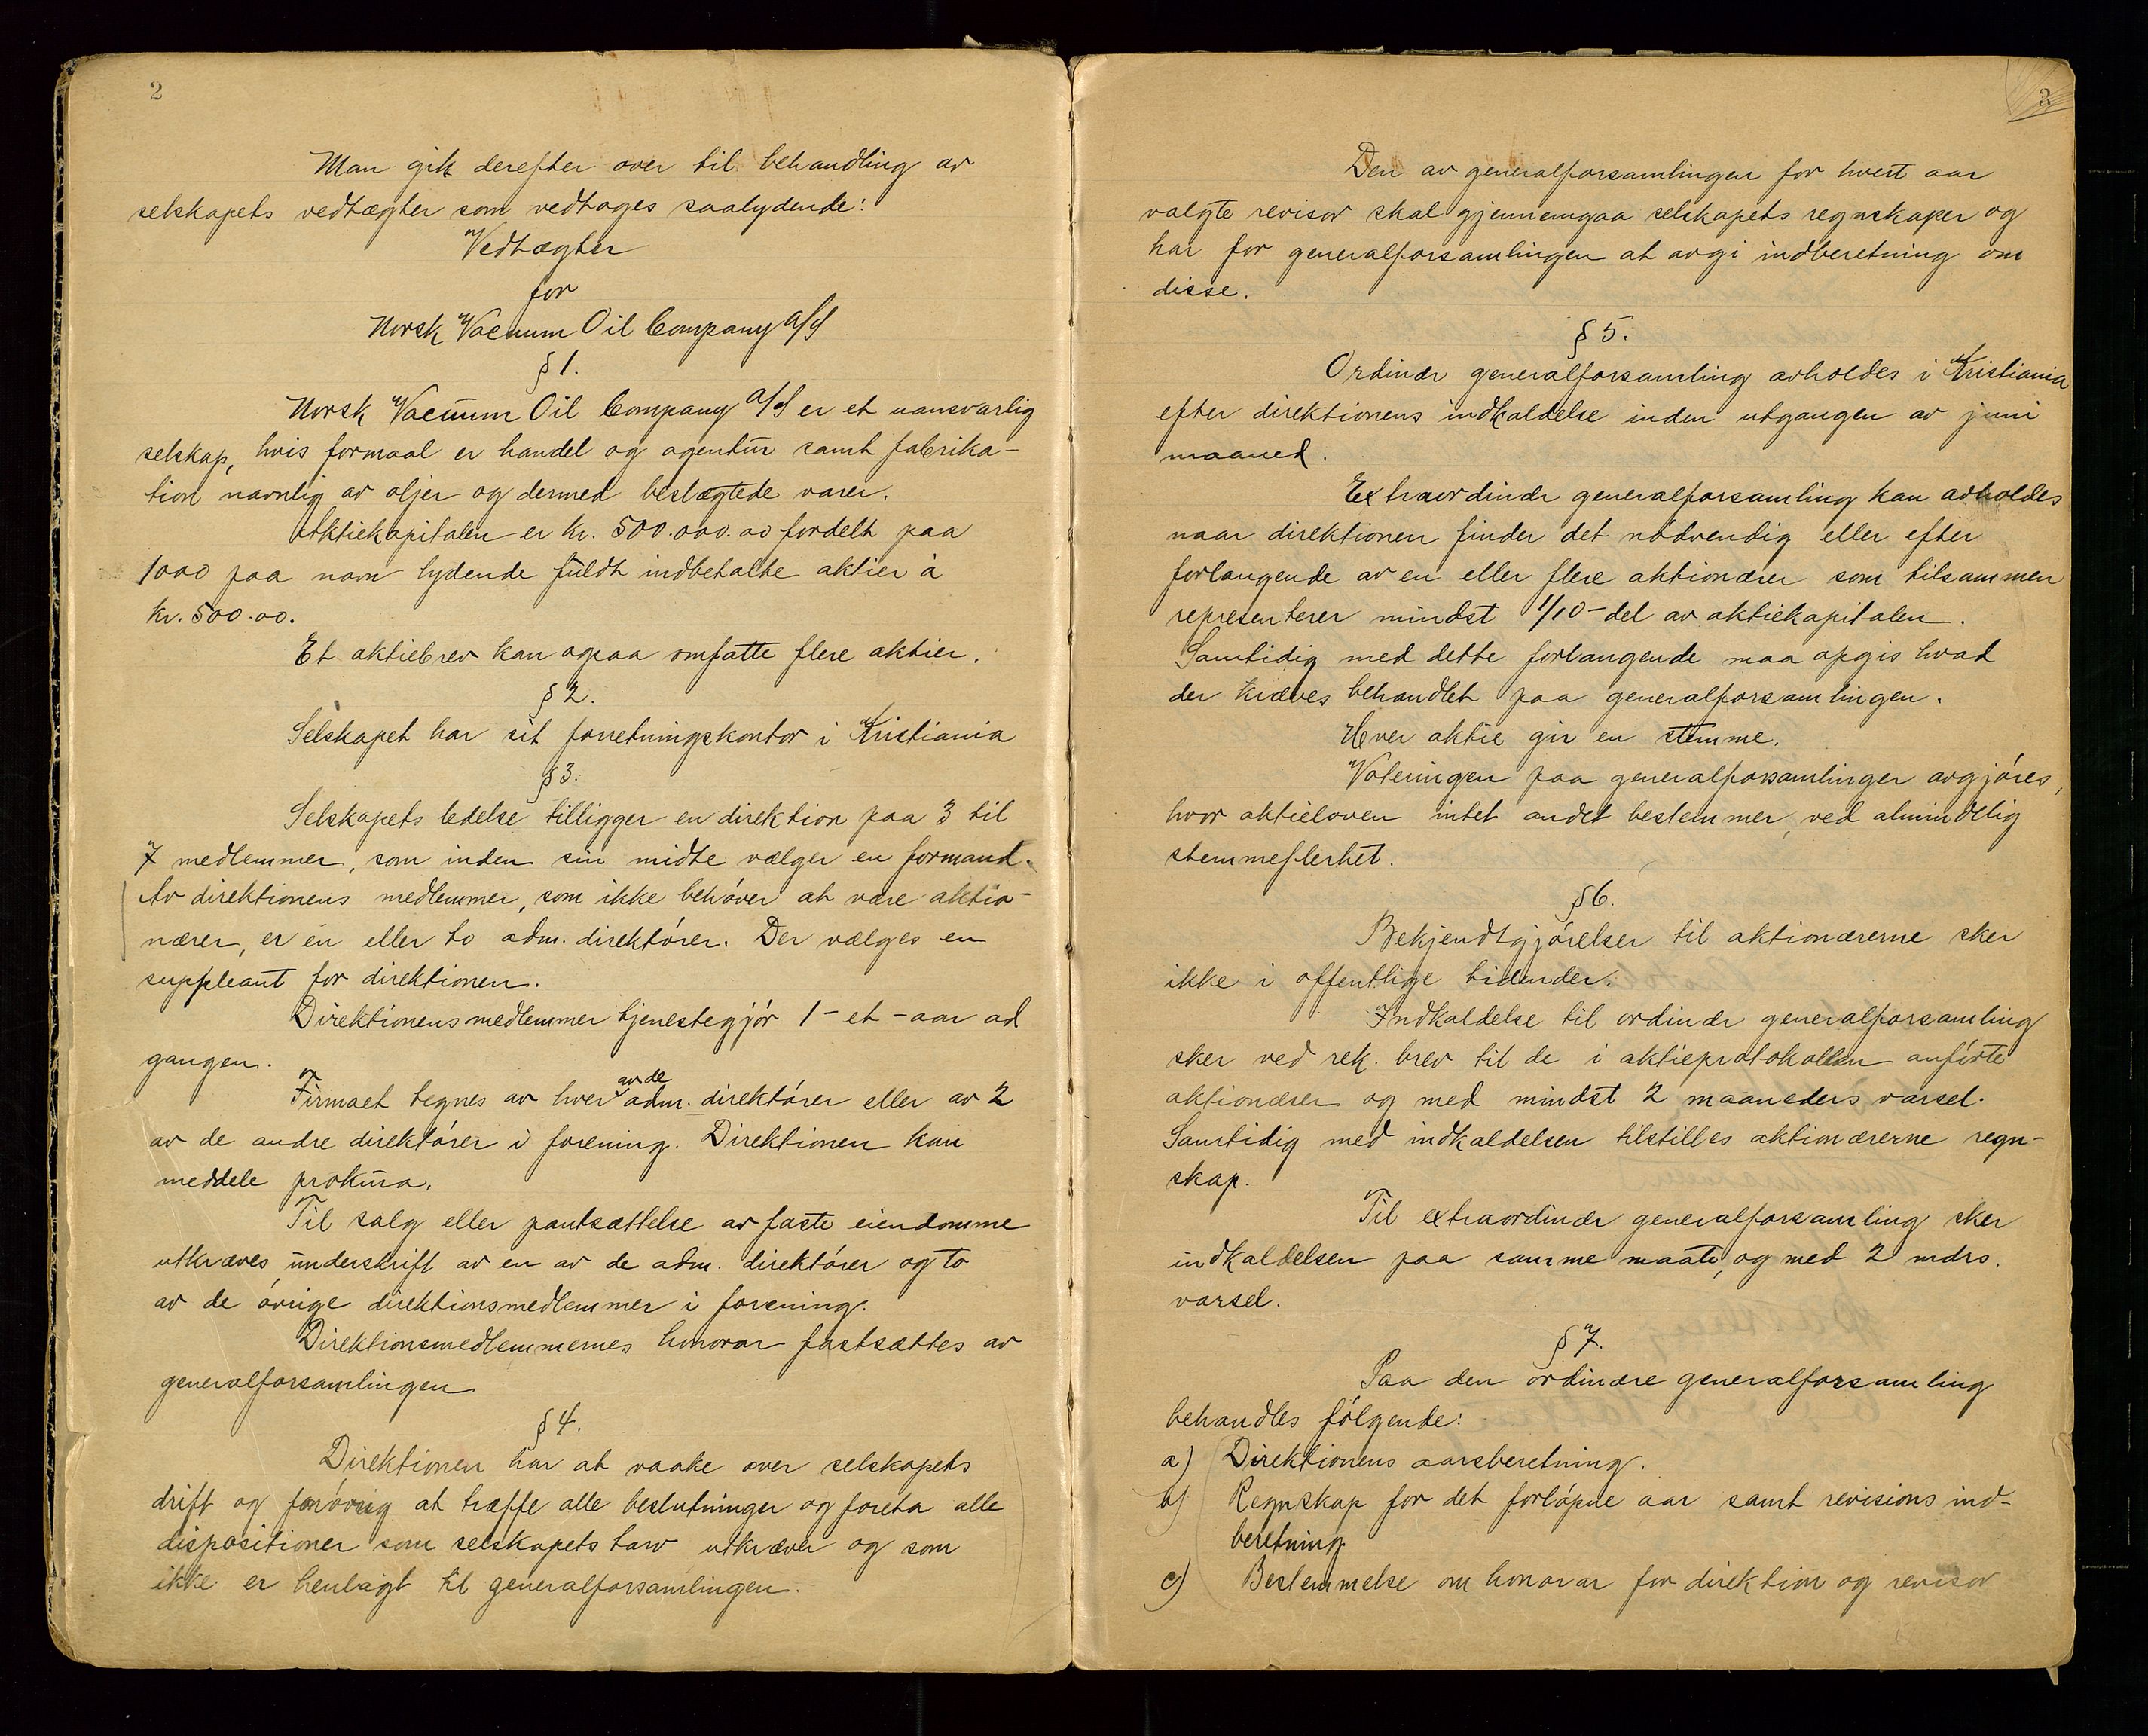 2
Man gik derefter over til behandling av
selskapets vedtægter som vedtoges saalydende:
Vedtægter
for
Norsk Vacuum Oil Company A/S
§ 1.
Norsk Vacuum Oil Company A/S er et uansvarlig
selskap, hvis formaal er handel og agentur samt fabrika-
tion navnlig av oljer og dermed beslægtede varer.
Aktiekapitalen er kr. 500.000.00 fordelt paa
1000 paa navn lydende fuldt indbetalte aktier à
kr. 500.00.
Et aktiebrev kan ogsaa omfatte flere aktier.
§ 2.
Selskapet har sit forretningskontor i Kristiania
§ 3.
Selskapets ledelse tilligger en direktion paa 3 til
7 medlemmer, som inden sin midte vælger en formand.
Av direktionens medlemmer, som ikke behøver at være aktio-
nærer, er én eller to adm. direktører. Der vælges en
suppleant for direktionen.
Direktionens medlemmer tjenestegjør 1 - et - aar ad
gangen.
Firmaet tegnes av hver av de adm. direktører eller av 2
av de andre direktører i forening. Direktionen kan
meddele prokura.
Til salg eller pantsættelse av faste eiendomme
utkræves underskrift av en av de adm. direktører og to
av de øvrige direktionsmedlemmer i forening.
Direktionsmedlemmernes honorar fastsættes av
generalforsamlingen
§ 4.
Direktionen har at vaake over selskapets
drift og forøvrig at træffe alle beslutninger og foreta alle
dispositioner som selskapets tarv utkræver og som
ikke er henlagt til generalforsamlingen.
3
Den av generalforsamlingen for hvert aar
valgte revisor skal gjennemgaa selskapets regnskaper og
har for generalforsamlingen at avgi indberetning om
disse.
§ 5.
Ordinær generalforsamling avholdes i Kristiania
efter direktionens indkaldelse inden utgangen av juni
maaned.
Extraordinær generalforsamling kan avholdes
naar direktionen finder det nødvendig eller efter
forlangende av en eller flere aktionærer som tilsammen
representerer mindst 1/10-del av aktiekapitalen.
Samtidig med dette forlangende maa opgis hvad
der kræves behandlet paa generalforsamlingen.
Hver aktie gir en stemme.
Voteringen paa generalforsamlinger avgjøres,
hvor aktieloven intet andet bestemmer, ved almindelig
stemmeflerhet.
§ 6.
Bekjendtgjørelser til aktionærerne sker
ikke i offentlige tidender.
Indkaldelse til ordinær generalforsamling
sker ved rek. brev til de i aktieprotokollen anførte
aktionærer og med mindst 2 maaneders varsel.
Samtidig med indkaldelsen tilstilles aktionærerne regn-
skap.
Til extraordinær generalforsamling sker
indkaldelsen paa samme maate, og med 2 mdrs.
varsel.
§ 7.
Paa den ordinære generalforsamling
behandles følgende:
a) Direktionens aarsberetning.
b) Regnskap for det forløpne aar samt revisions ind-
beretning
c) Bestemmelse om honorar for direktion og revisor